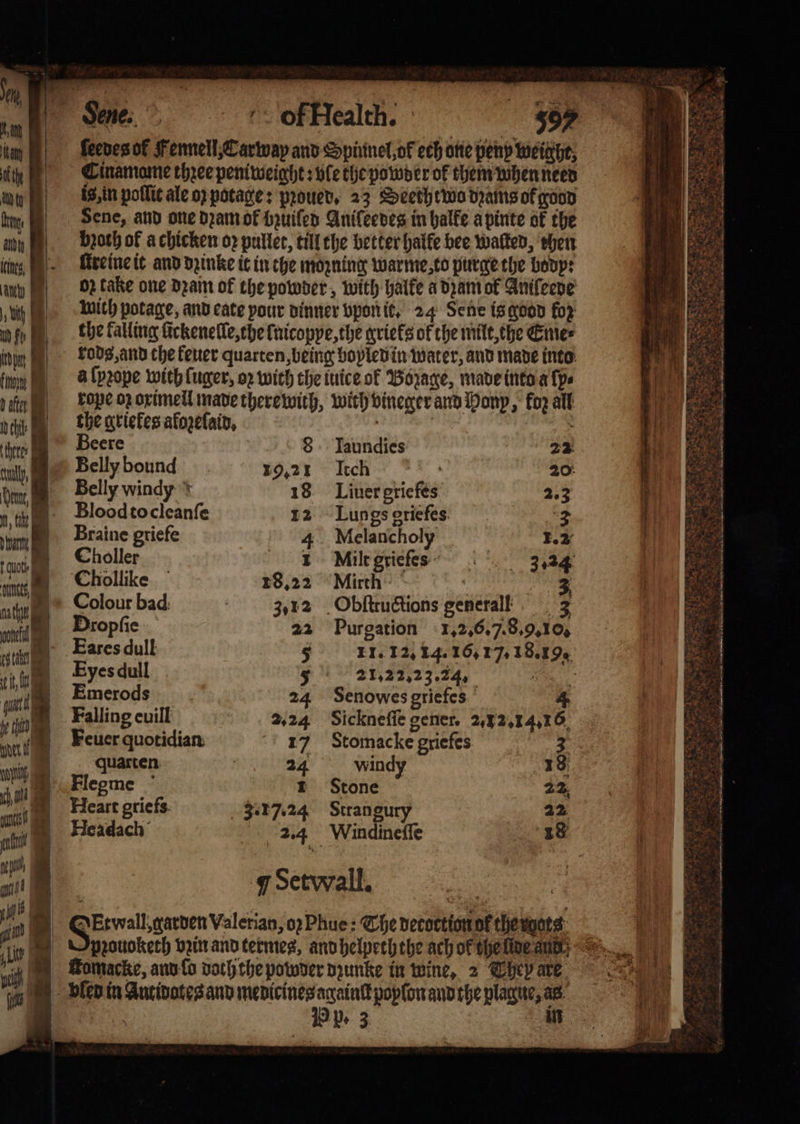 Sene. of Health. 597
seedes of Fennell, Carway and Spikinel, of ech one peny weight,
Cinamome three peniweight: vse the powder of them when need
is, in posset ale or potage: proued. 23 Seeth two drams of good
Sene, and one dram of bruised Aniseedes in halfe a pinte of the
broth of a chicken or pullet, till the better halfe bee wasted, then
streine it and drinke it in the morning warme, to purge the body:
or take one dram of the powder, with halfe a dram of Aniseede
with potage, and eate your dinner vpon it. 24 Sene is good for
the falling sickenesse, the snicoppe, the griefs of the milt, the Eme-
rods, and the feuer quarten, being boyled in water, and made into
a syrope with suger, or with the iuice of Borage, made into a sy-
rope or oximell made therewith, with vineger and Hony, for all
the griefes aforesaid.
Beere 8
Belly bound 19,21
Belly windy 18
Blood to cleanse 12
Braine griefe 4
Choller 1
Chollike 18,22
Colour bad 3,12
Dropsie 22
Eares dull 5
Eyes dull 5
Emerods 24
Falling euill 2,24
Feuer quotidian 17
quarten 24
Flegme 1
Heart griefs 3.17.24
Headach 2.4
Iaundies 22
Itch 20
Liuer griefes 2.3
Lungs griefes 3
Melancholy 1.2
Milt griefes 3,24
Mirth 3
Obstructions generall 3
Purgation 1,2,6.7.8.9,10,
11. 12, 14. 16, 17, 18.19,
21,22,23.24,
Senowes griefes 4
Sicknesse gener. 2,12,14,16
Stomacke griefes 3
windy 18
Stone 22
Strangury 22
Windinesse 18
¶ Setwall.
SEtwall, garden Valerian, or Phue: The decoction of the roots
prouoketh vrin and termes, and helpeth the ach of the side and
stomacke, and so doth the powder drunke in wine, 2 They are
vsed in Antidotes and medicines against poyson and the plague, as
Pp. 3 in